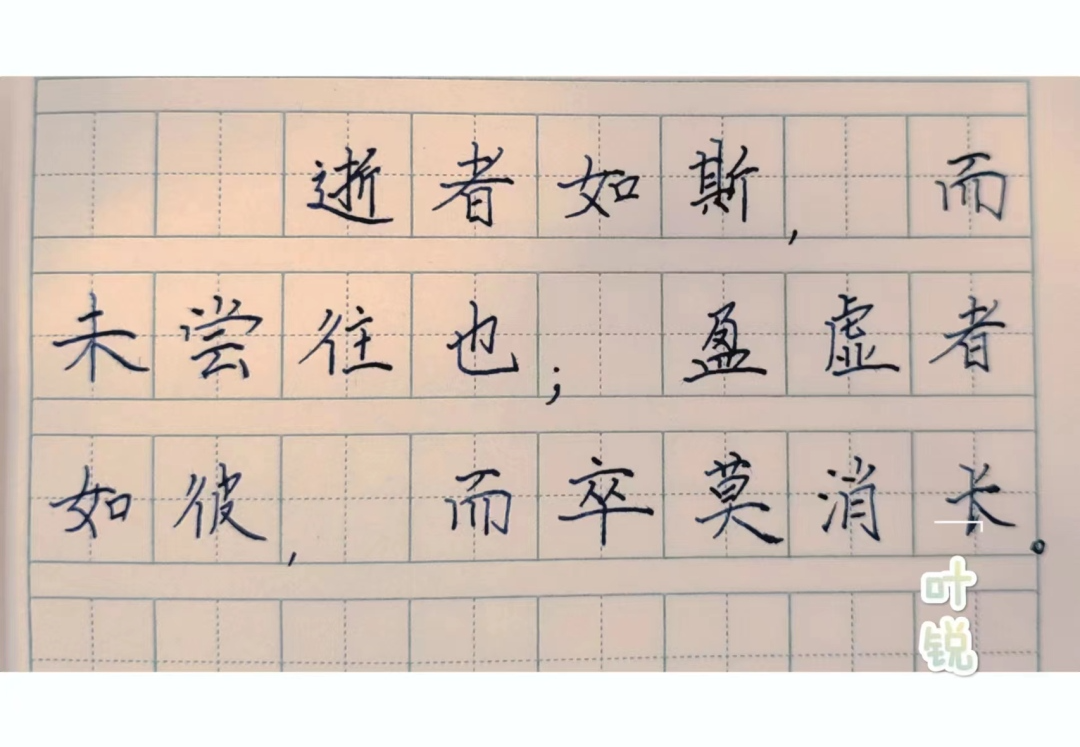 逝者如斯,而
未尝往也;盈虚者
如彼,而卒莫消长。
叶
锐